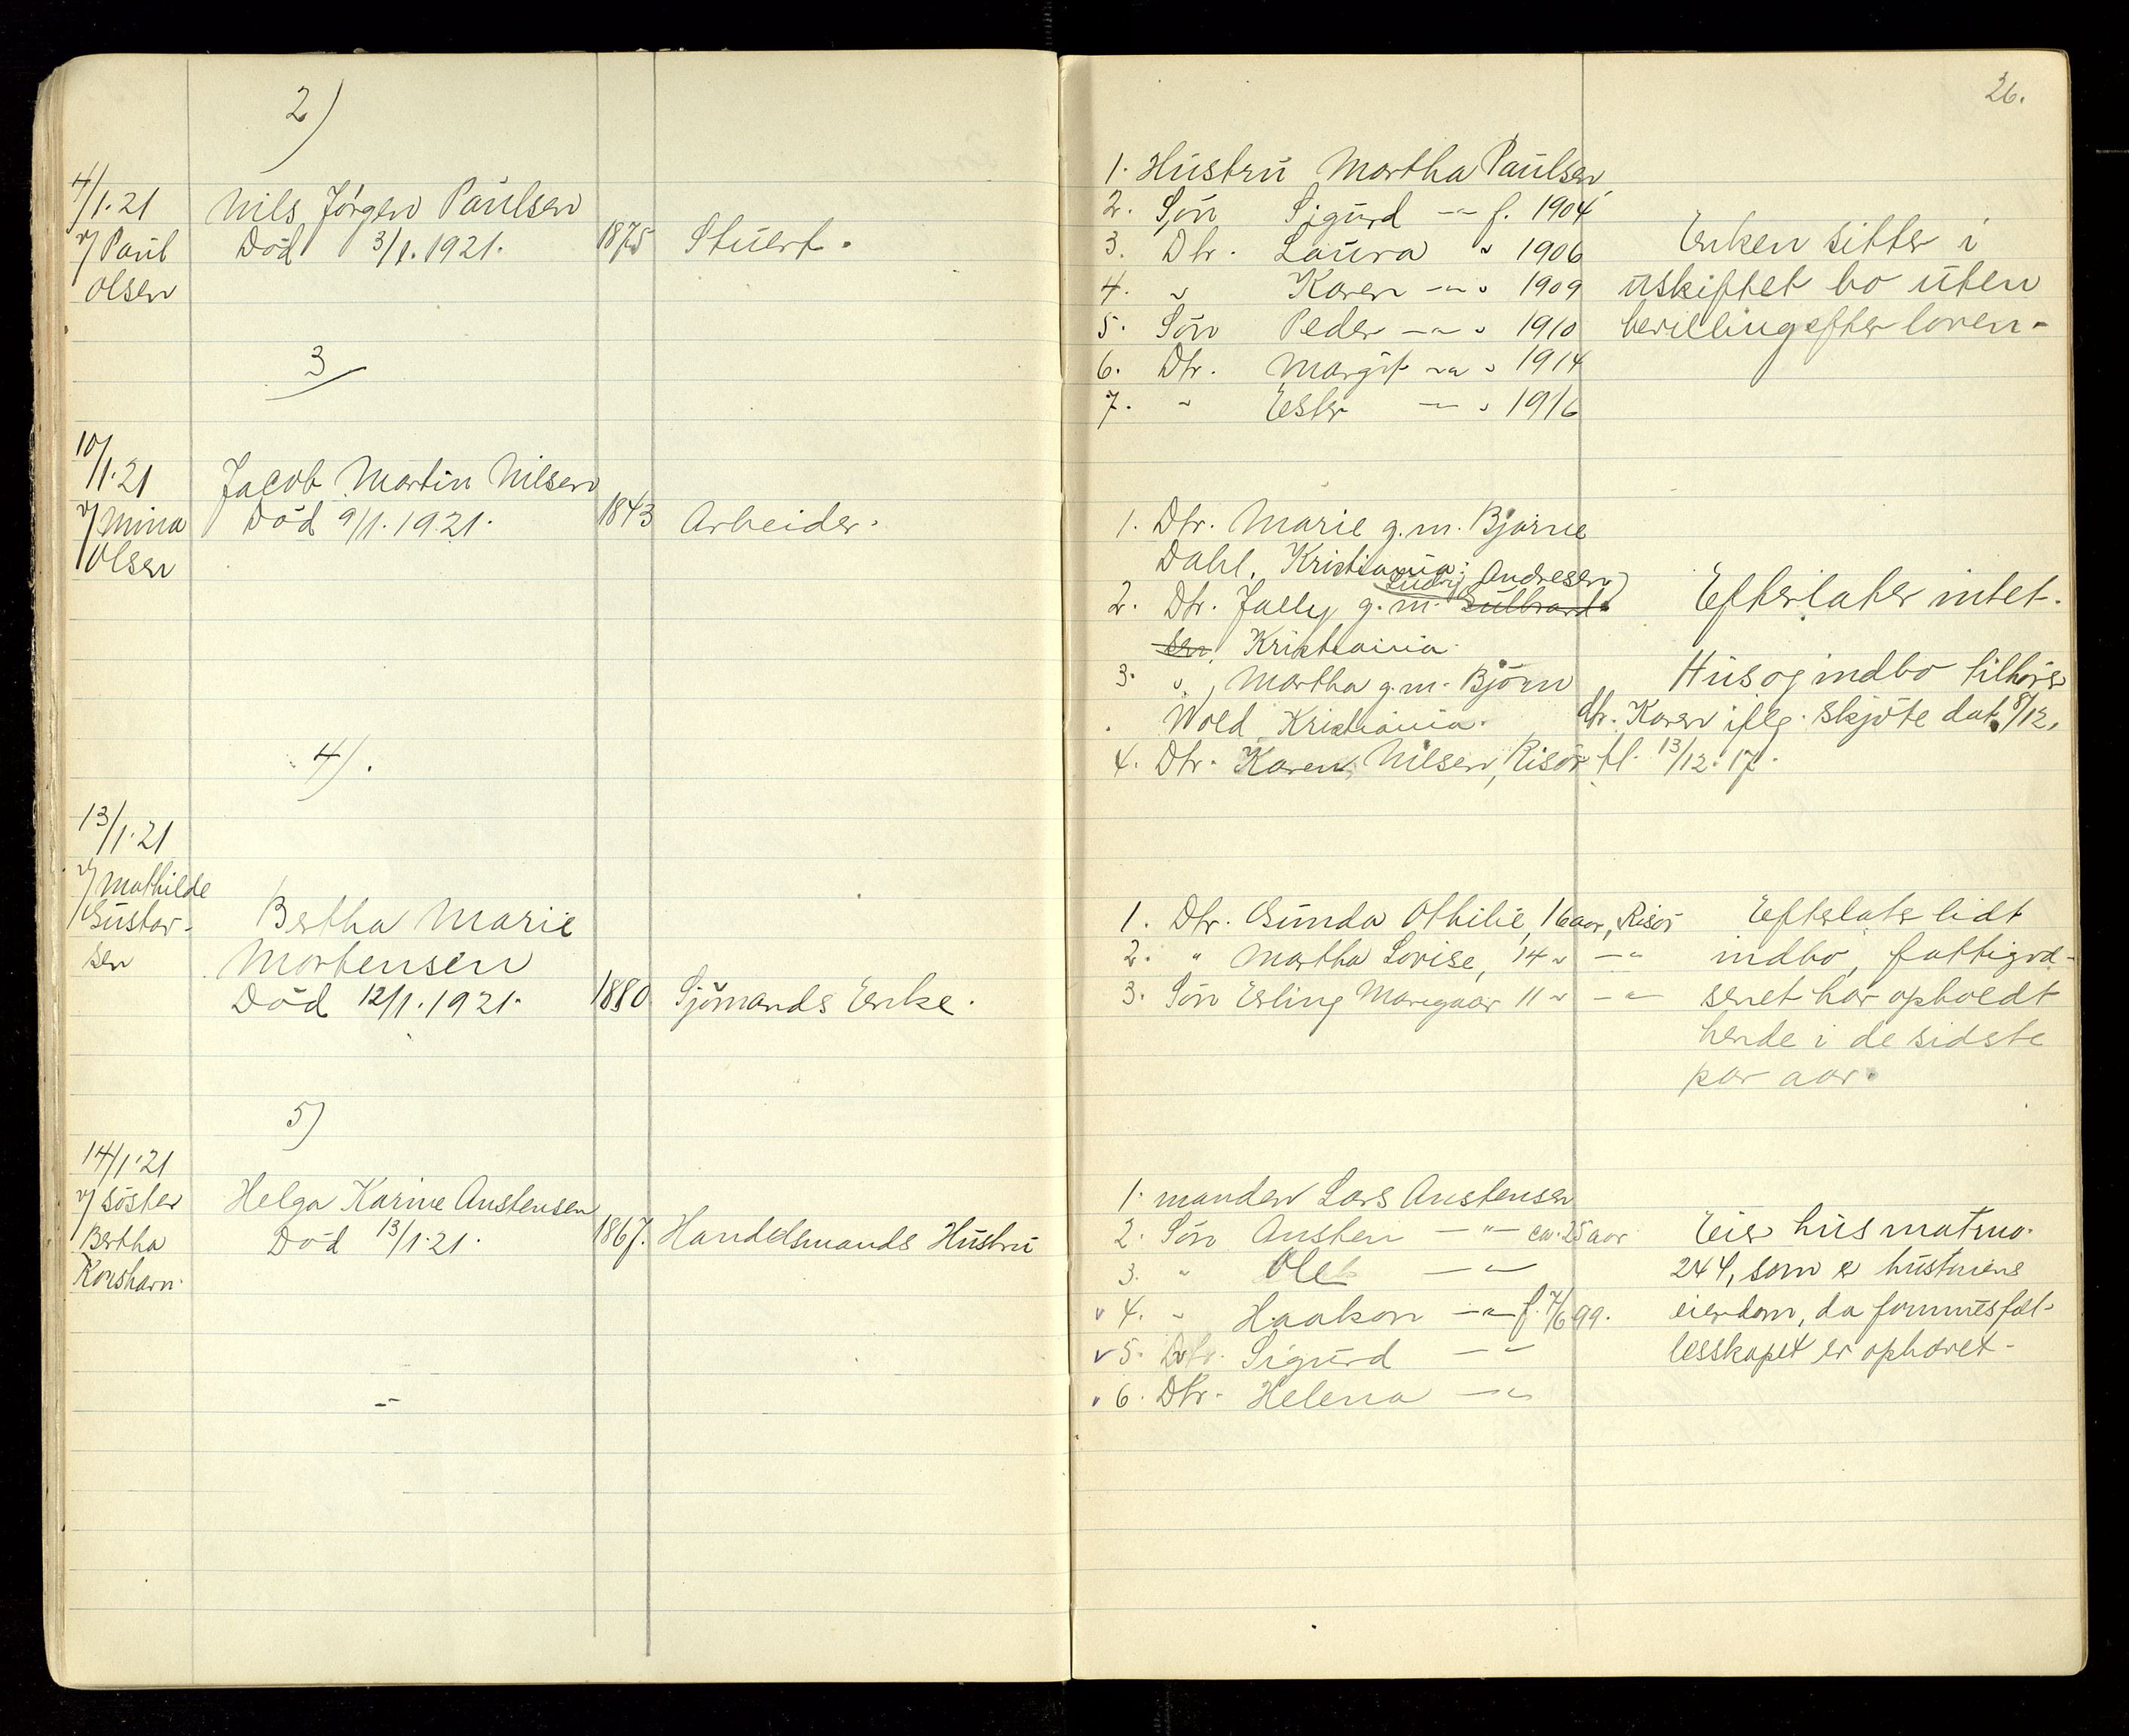 26.
2)
4/1.21
v/ Paul
Olsen
Nils Jörgen Paulsen
Död 3/1.1921.
1875
Stuert.
1. Hustru Martha Paulsen
2. Sön Sigurd -"- f. 1904
3. Dtr. Laura " 1906
4. " Karen -"- " 1909
5. Sön Peder -"- " 1910
6. Dtr. Margit -"- " 1914
7. " Ester -"- " 1916
Enken sitter i
uskiftet bo uten
bevilling efter loven-
3
10/1.21
v/ Mina
Olsen
Jacob Martin Nilsen
Död 9/1.1921.
1843
Arbeider.
1. Dtr. Marie g.m. Bjarne
Dahl, Kristiania:
Ludvig Andresen
2. Dtr. Jally g.m. Gulbrand-
sen, Kristiania.
3. ", Martha g.m. Björn
Wold Kristiania.
4. Dtr. Karen Nilsen, Risör
Efterlater intet.
Hus og indbo tilhörer
dtr. Karen iflg. Skjöte dat. 8/12,
tl. 13/12.17.
4).
13/1.21
v/ Mathilde
Gustav-
sen
Bertha Marie
Mortensen
Död 12/1.1921.
1880
Sjömands Enke.
1. Dtr. Gunda Othilie, 16 aar, Risör
2. " Martha Lovise, 14 " -"-
3. Sön Erling 11 " -"-
Efterlater lidt
indbo, fattigvæ-
senet har opholdt
hende i de sidste
par aar.
5)
14/1.21
v/ söster
Bertha
Korshavn.
Helga Karine Austensen
Död 13/1.21.
1867.
Handelsmands Hustru
1. manden Lars Austensen
2. Sön Austen -"- ca. 25 aar
3. " Ole -"-
v 4. " Haakon -"- f. 7/6 99.
v 5. Sigurd -"-
v 6. Dtr. Helena -"-
Eier hus matr.no.
244, som er hustruens
eiendom, da formuesfæl-
lesskapet er ophævet-